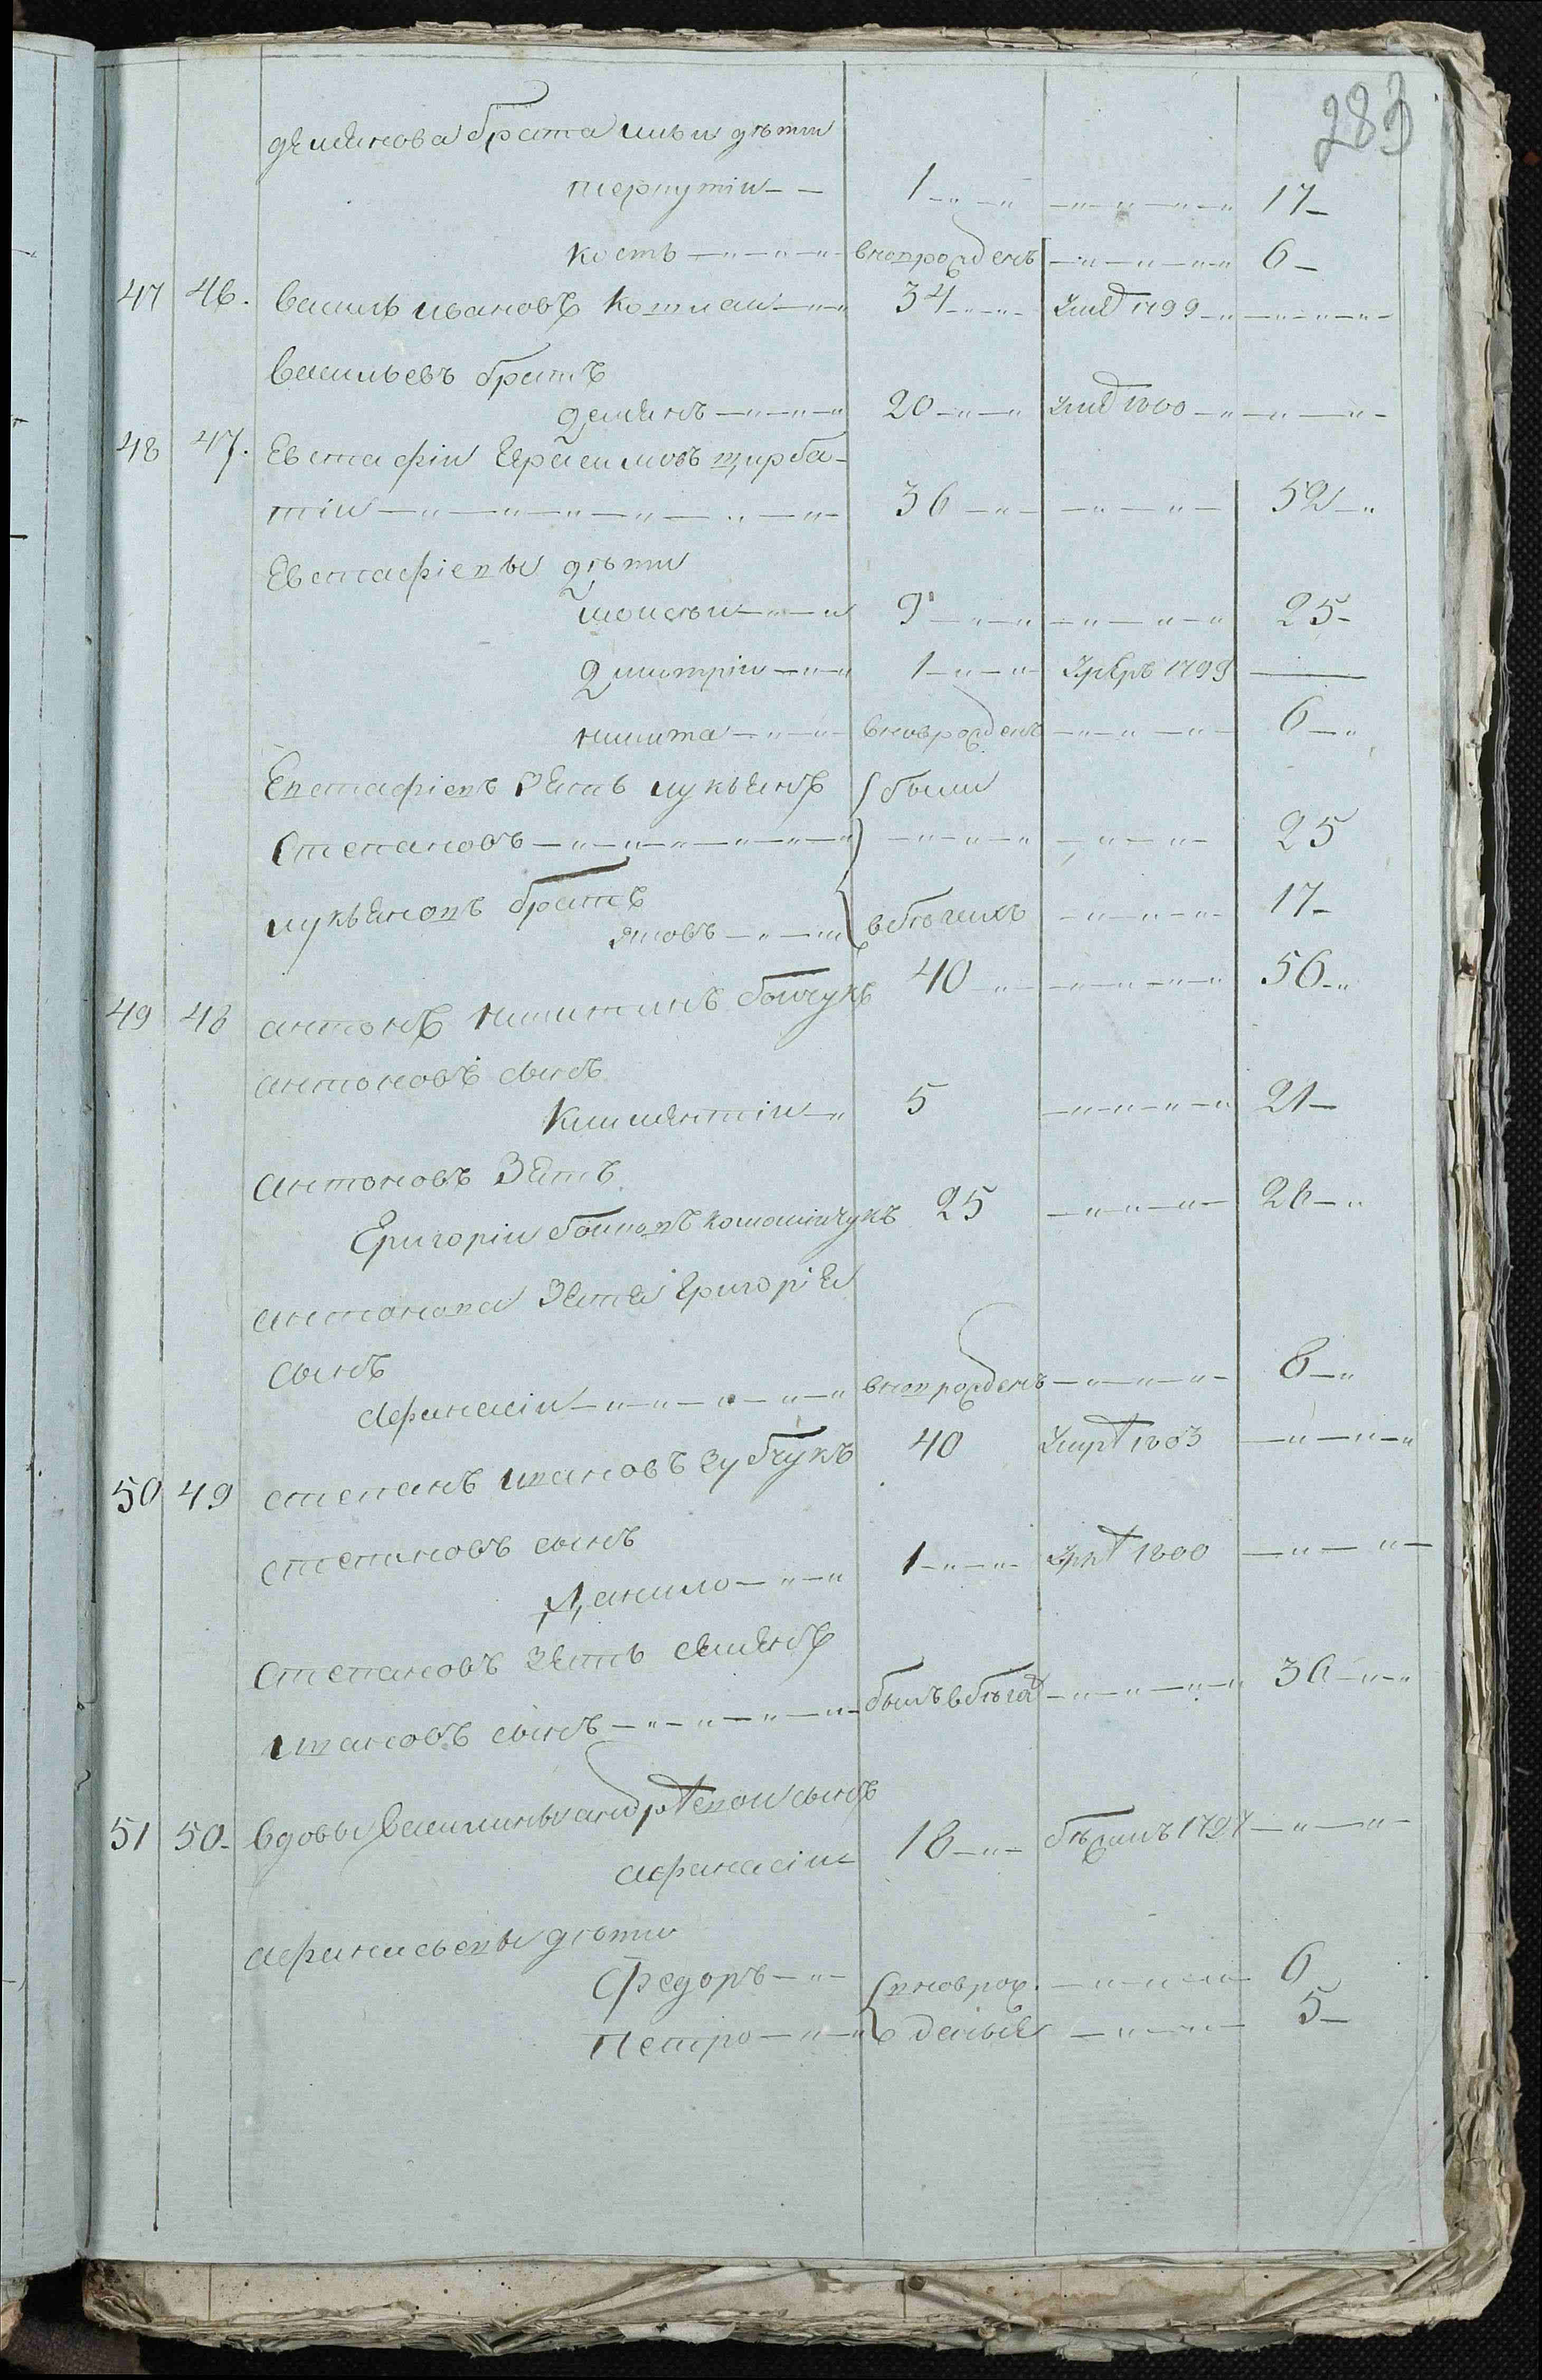 283
демянова брата ильи дѣти
терпутіи 1 17
кость вновърожденъ 6
47 46. василь ивановъ котлаи 34 Умр 1799
васильевъ братъ
демянъ 20 Умр 1800
48 47. Евстафіи Герасимовъ щирба-
тіи 36 52
Евстафіевы дѣти
моисѣи 9 25
Дмитріи 1 1799
никита вновърожденъ 6
Евстафіевъ зять лукьянъ были
Степановъ 25
лукьяновъ братъ
яковъ вбѣгахъ 17
49 48 антонъ никитинъ боичукъ 40 56
антоновъ сынъ
Климянтіи 5 21
антоновъ Зять
Григоріи боиковъ 25 28
антонова Зятя Григорія
сынъ
афанасіи вновърожденъ 8
50 49 степанъ ивановъ Зубчукъ 40 1803
степановъ сынъ
Данило 1 1800
степановъ зять семянъ
ивановъ сынъ былъ вбѣгах 36
51 50. вдовы Василины сынъ
афанасіи 18 бѣжалъ
афанасьевы дѣти
Федоръ вновърож- 6
Петро деныя 5